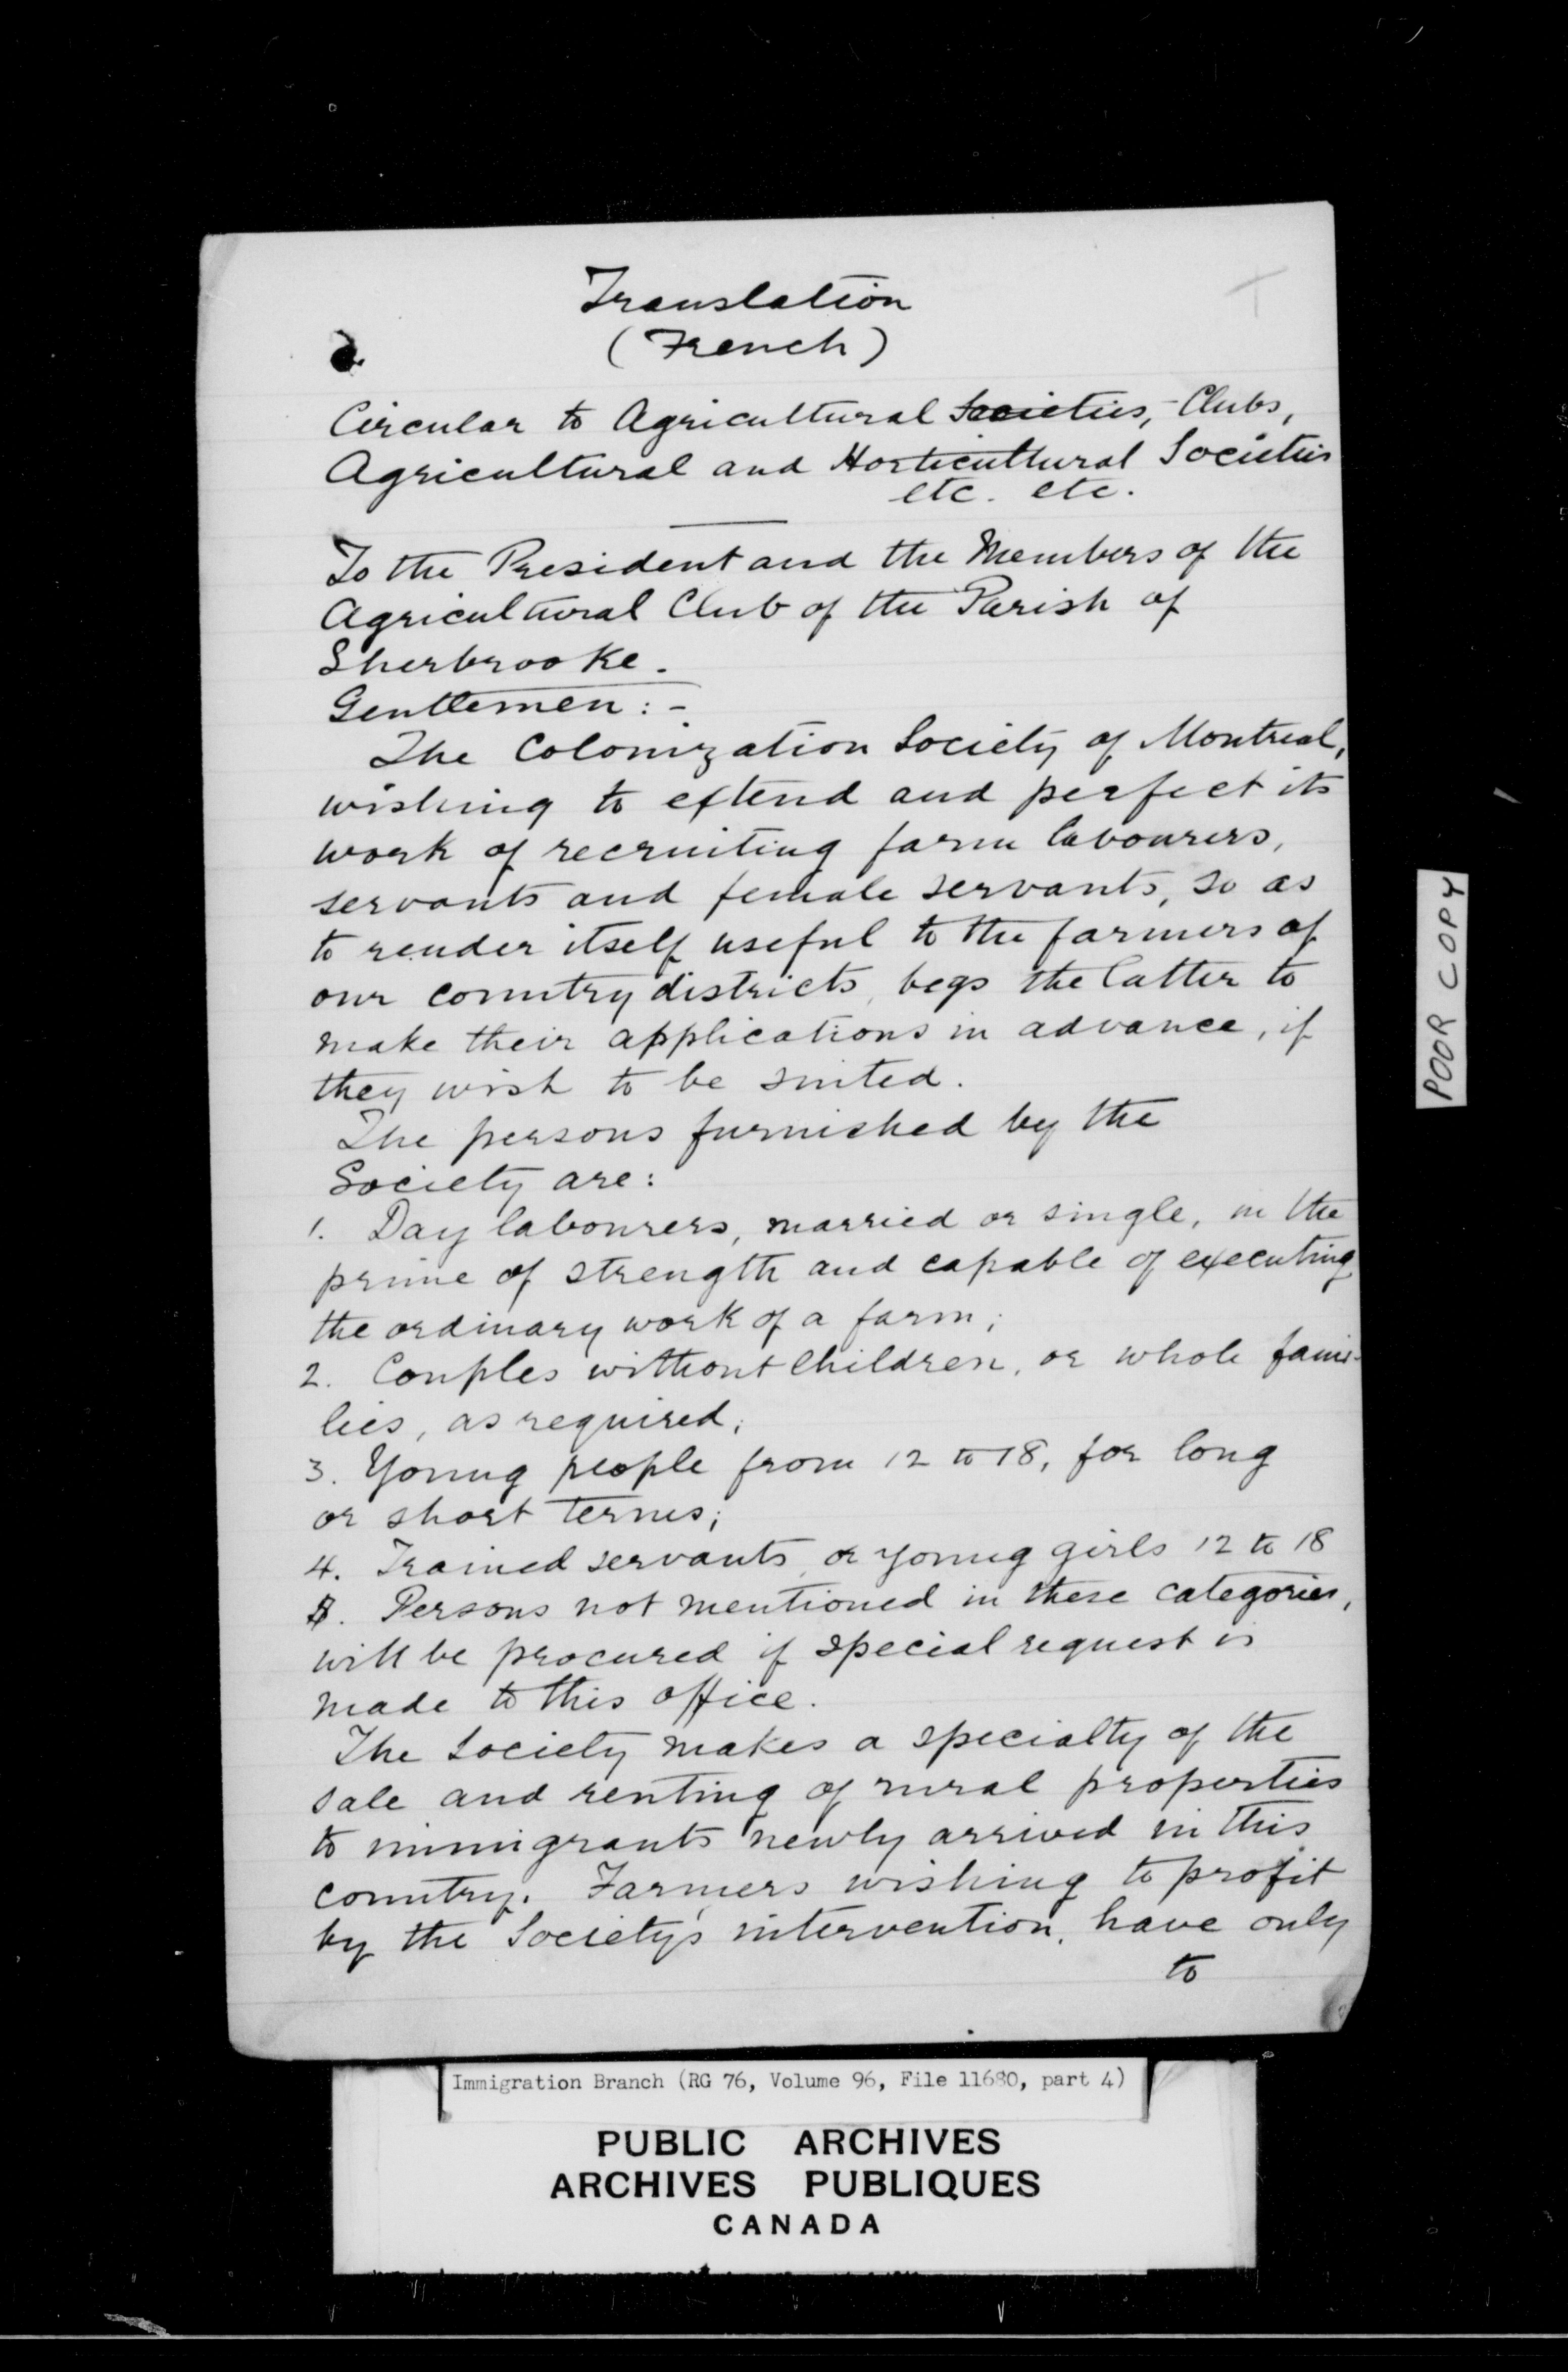 Translation
(French)
Circular to Agricultural Societies, - Clubs,
Agricultural and Horticultural Societies
etc. etc.
To the President and the Members of the
Agricultural Club of the Parish of
Sherbrooke.
Gentlemen: -
The Colonization Society of Montreal,
wishing to extend and perfect its
work of recruiting farm labourers,
servants and female servants, so as
to render itself useful to the farmers of
our country districts, begs the latter to
make their applications in advance, if
they wish to be suited.
The persons furnished by the
Society are:
1. Day labourers, married or single, in the
prime of strength and capable of executing
the ordinary work of a farm;
2. Couples without children, or whole fami-
lies, as required;
3. Young people from 12 to 18, for long
or short terms;
4. Trained servants, or young girls 12 to 18
5. Persons not mentioned in these categories,
will be procured if special request is
made to this office.
The Society makes a specialty of the
sale and renting of rural properties
to immigrants newly arrived in this
country. Farmers wishing to profit
by the Society's intervention, have only
to
POOR COPY
Immigration Branch (RG 76, Volume 96, File 11680, part 4)
PUBLIC ARCHIVES
ARCHIVES PUBLIQUES
CANADA